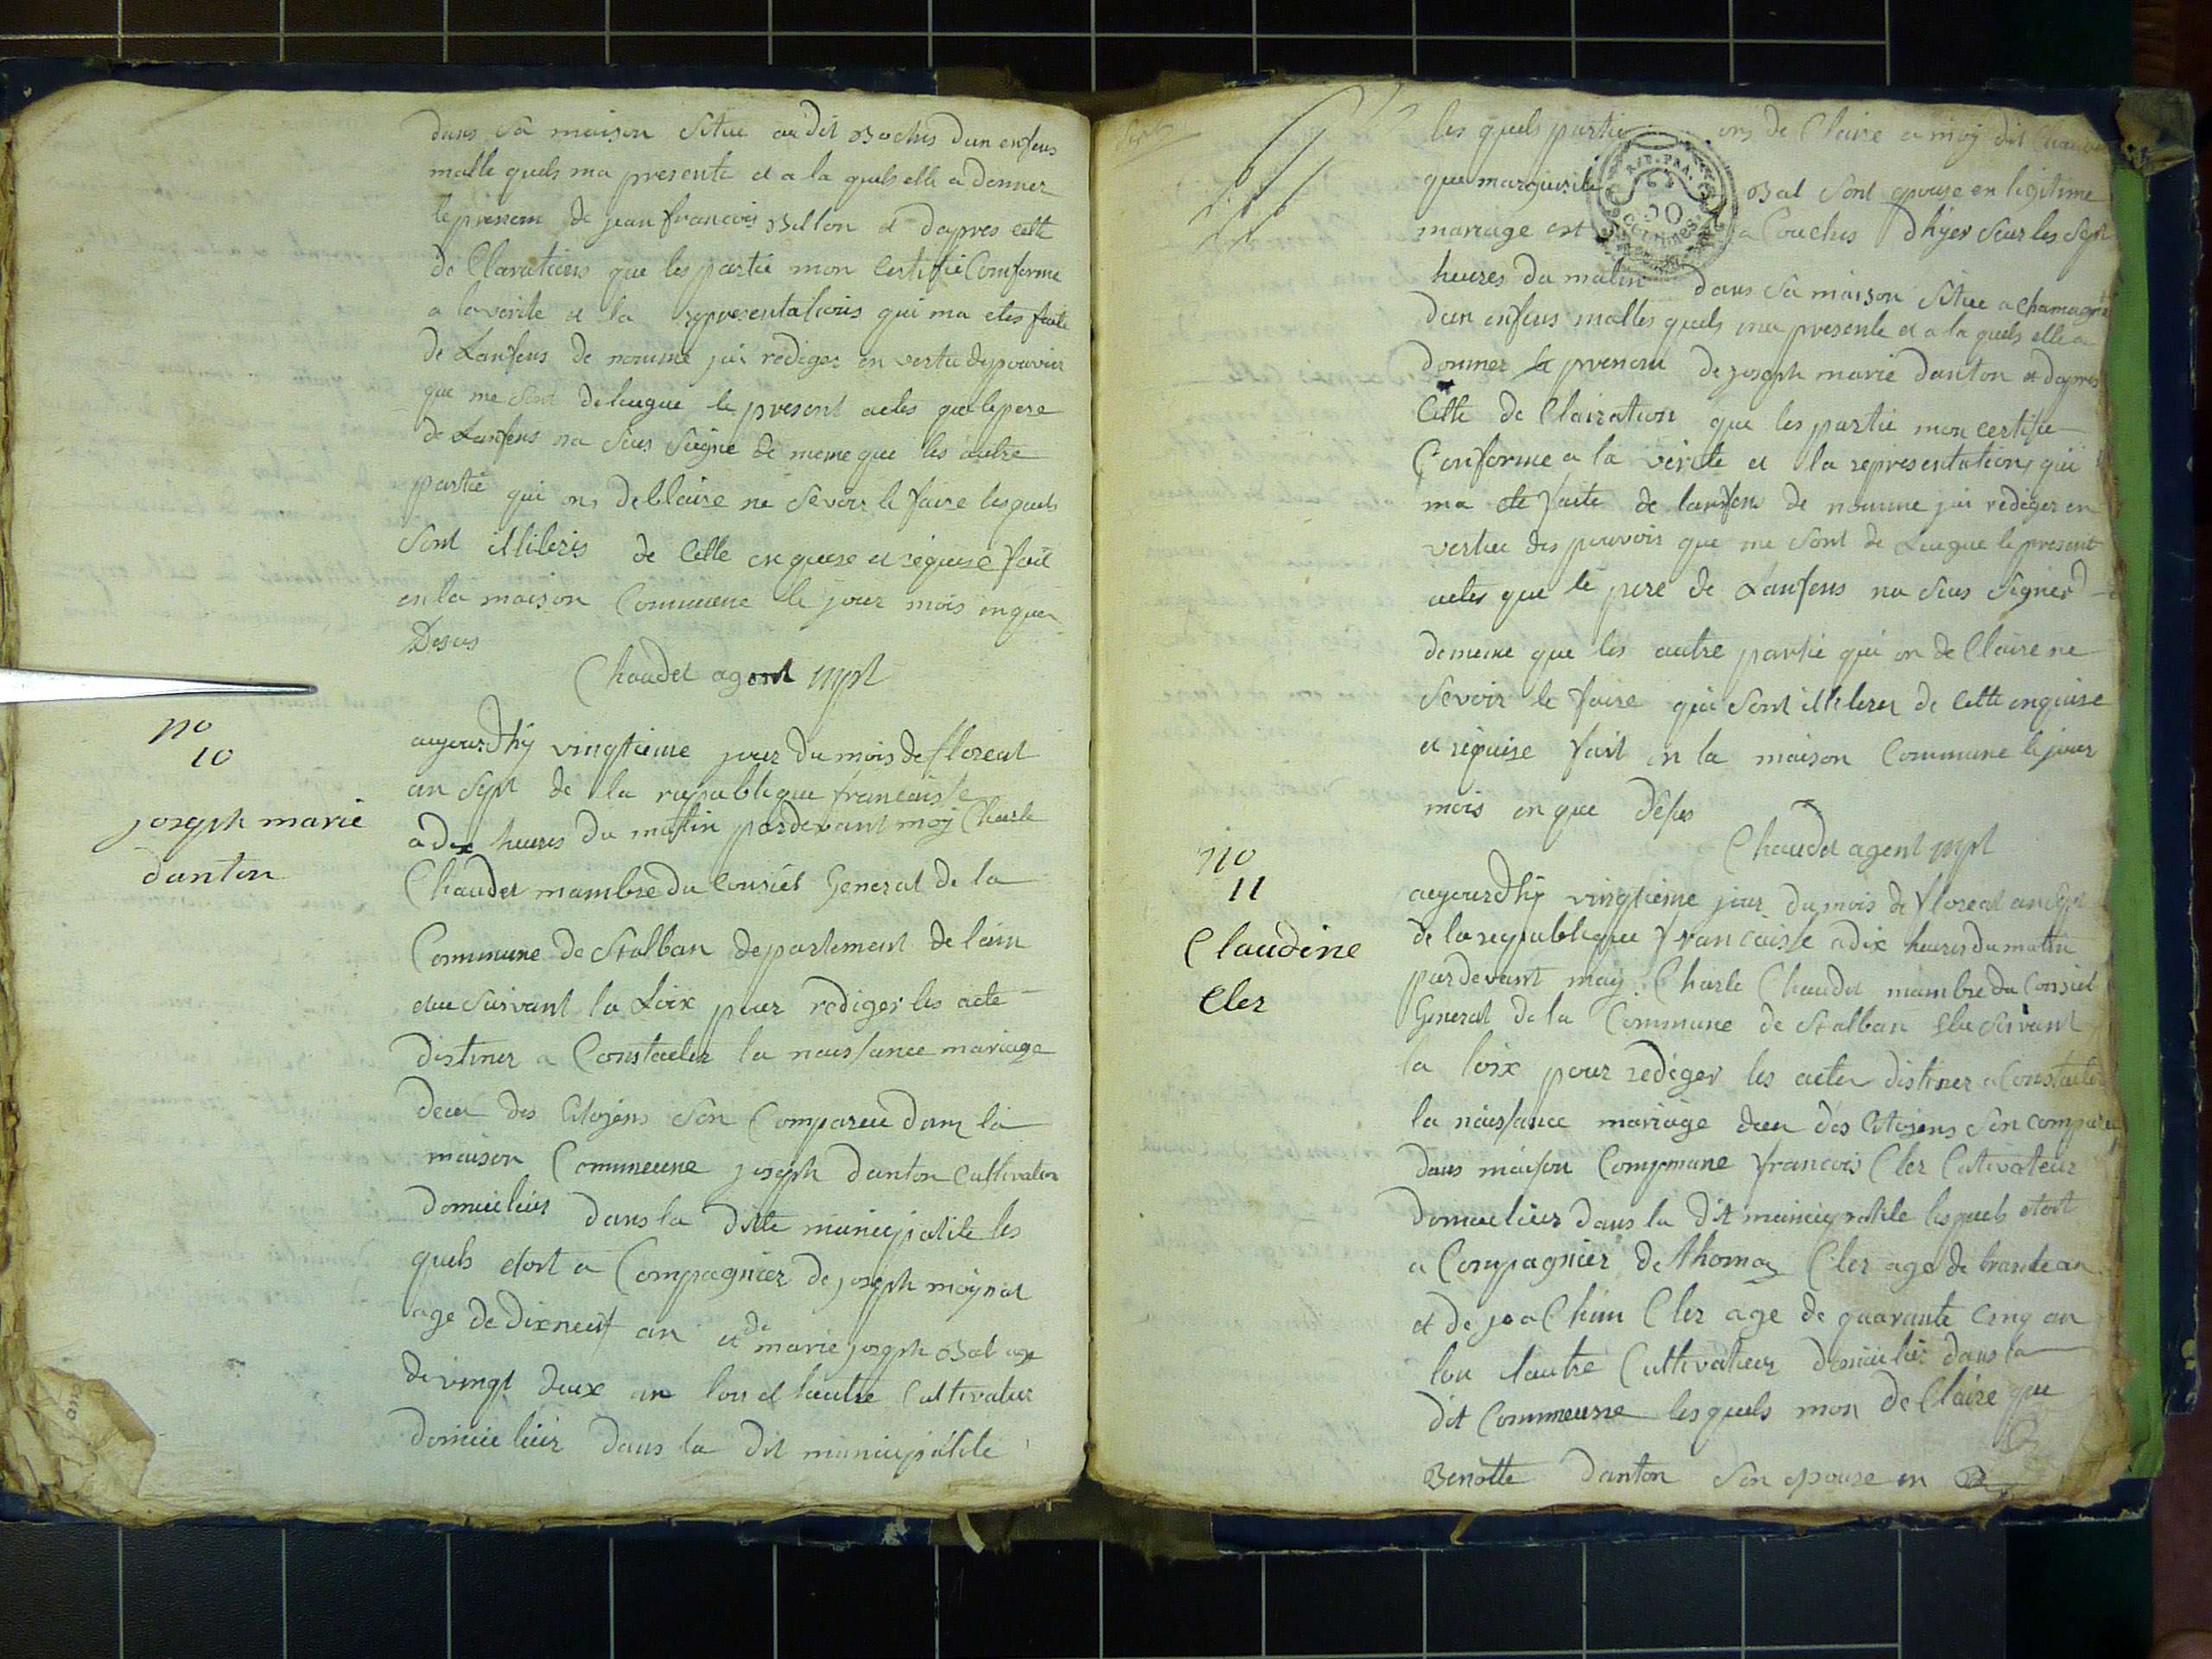 dans sa maison Situe au dit Boches dun enfens
malle quels ma presente et a la quels elle a donner
le prenom de jean francois Billon et dapres cette
de Clarations que les partie mon Certifie Conforme
a la verite et la representations qui ma etes faite
de Lanfens de nomme jai rediger en vertu des pouvoir
que me sont deleugue le present actes que le pere
de Lanfens na Seus Seigne de meme que les autre
partie qui on deClaire ne Sevoir le faire lesquels
Sont illiteris de Celle enquise et requise fait
en la maison Commeune le jour mois en que
Desus
Chaudet agent mpl
no
10
joseph marie
danton
aujourdhy vingtieme jour du mois de floreal
an Sept de la republique francaisse
a dix heures du matin pardevant moy Charle
Chaudet mambre du Consiel General de la
Commune de Stalban departement de lain
elue Suivant la Loix pour rediger les acte
distiner a Constacter la naissance mariage
decer des Citojens Son Comparue dans la
maison Commeune joseph danton Cultivateur
domicilier dans la ditte municipalite les
quels etoit a Compagnier de joseph moynat
age de dixneuf an et de marie joseph Bal age
de vingt deux an lon et lautre Cultivateur
domicilier dans la dit municipalite
les quels partie ons de Claire a moy dit Chaudet
que margueritte Bal Sont epouse en legitime
mariage est a Couches dhyer Seur les Sept
heures du matin dans Sa maison Situe a Chamagna
dun enfens malles quels ma presente et a la quels elle a
donner le prenom de joseph marie danton et dapres
Cette de Clairation que les partie mon certifie
Conforme a la verite et la representations qui
ma ete faite de lanfens de nomme jai rediger en
vertue des pouvoir que me Sont de Leugue le present
actes que le pere de Lanfens na Seus Signer
de meme que les autre partie qui on de Claire ne
Sevoir le faire qui Sont illiterer de Cette enquise
et requise fait en la maison Commune le jour
mois en que desus
Chaudet agent mpl
no
11
Claudine
Cler
aujourdhy vingtieme jour du mois de floreal an Sept
de la republique francaisse a dix heures du matin
pardevant moy Charle Chaudet mambre du Consiel
General de la Commune de Stalban Elu Suivant
la loix pour rediger les actes distiner a Constacter
la naissance mariage decer des Citojens Son comparue
dans maison Commune francois Cler Cultivateur
domicilier dans la dit municipalite lesquels etoit
a Compagnier de thomas Cler age de trante an
et de joaChim Cler age de quarante Cinq an
lon lautre Cultivateur domicilier dans la
dit Commeune lesquels mon deClaire que
Benoitte danton Son epouse en